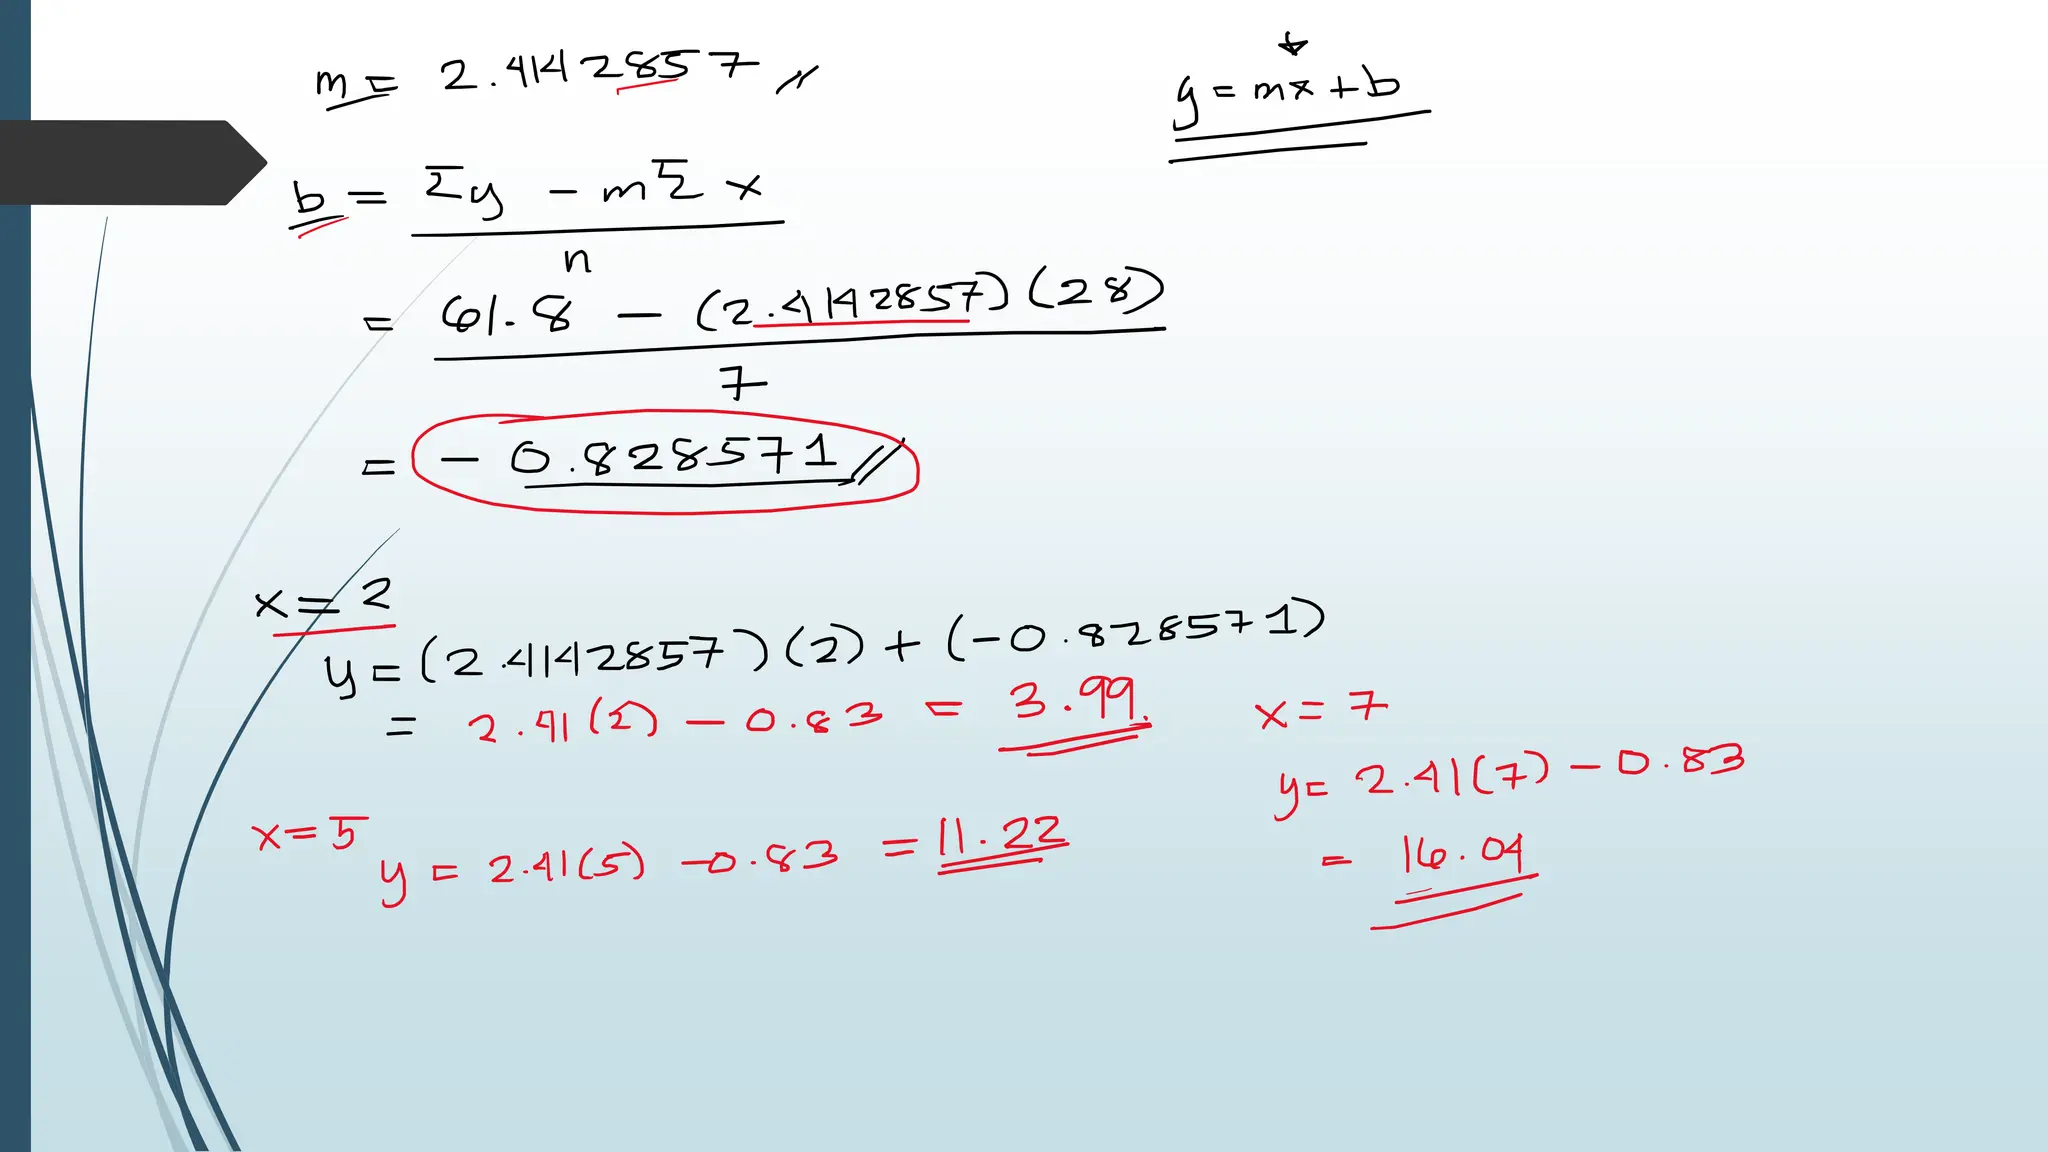 m = 2.4142857 //
y = mx + b
b = Σy - mΣx
n
= 61.8 - (2.4142857)(28)
7
= - 0.828571 //
x = 2
y = (2.4142857)(2) + (-0.828571)
= 2.41(2) - 0.83 = 3.99.
x = 7
y = 2.41(7) - 0.83
= 16.04
x = 5
y = 2.41(5) - 0.83 = 11.22